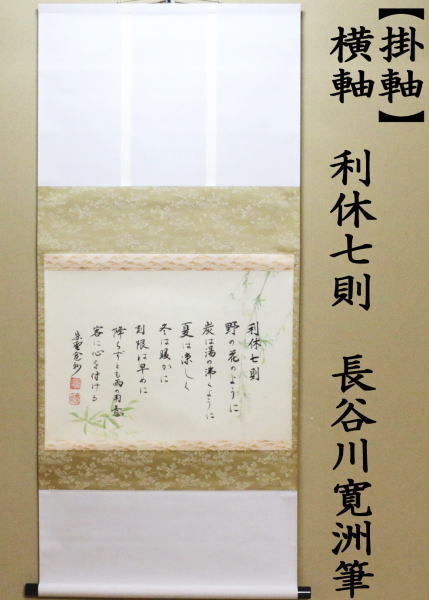 【掛軸】
横軸 利休七則 長谷川寛洲筆
利休七則
野の花のように
炭は湯の沸くように
夏は涼しく
冬は暖かに
刻限は早めに
降らずとも雨の用意
客に心を付ける